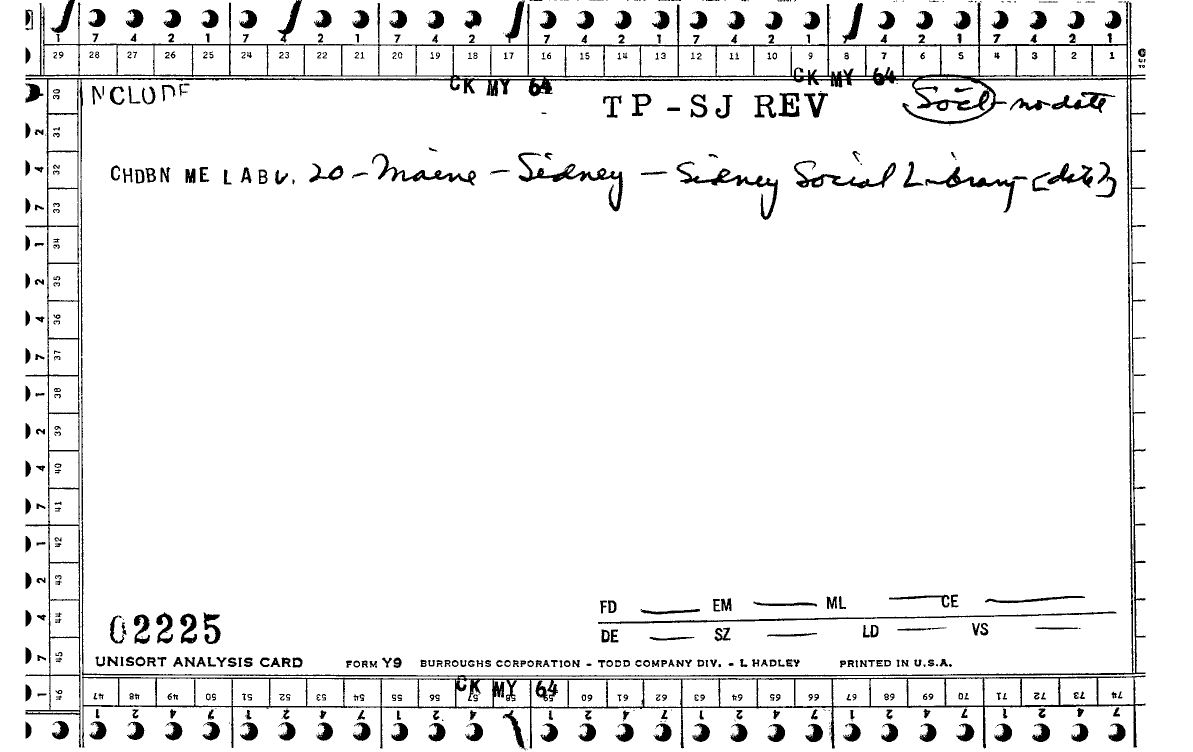 1 7 4 2 1 7 4 2 1 7 4 2 1 7 4 2 1 7 4 2 1 7 4 2 1 7 4 2 1
29 28 27 26 25 24 23 22 21 20 19 18 17 16 15 14 13 12 11 10 9 8 7 6 5 4 3 2 1
CK MY 64 CK MY 64
NCLUDE TP-SJ REV Socl - no date
CHDBN ME LABU. 20 - Maine - Sidney - Sidney Social Library [date?]
1 30
2 31
4 32
7 33
1 34
2 35
4 36
7 37
1 38
2 39
4 40
7 41
1 42
2 43
4 44
7 45
1 46
FD EM ML CE
02225
DE SZ LD VS
UNISORT ANALYSIS CARD FORM Y9 BURROUGHS CORPORATION - TODD COMPANY DIV. - L HADLEY PRINTED IN U.S.A.
CK MY 64
47 48 49 50 51 52 53 54 55 56 57 58 59 60 61 62 63 64 65 66 67 68 69 70 71 72 73 74
1 2 4 7 1 2 4 7 1 2 4 7 1 2 4 7 1 2 4 7 1 2 4 7 1 2 4 7